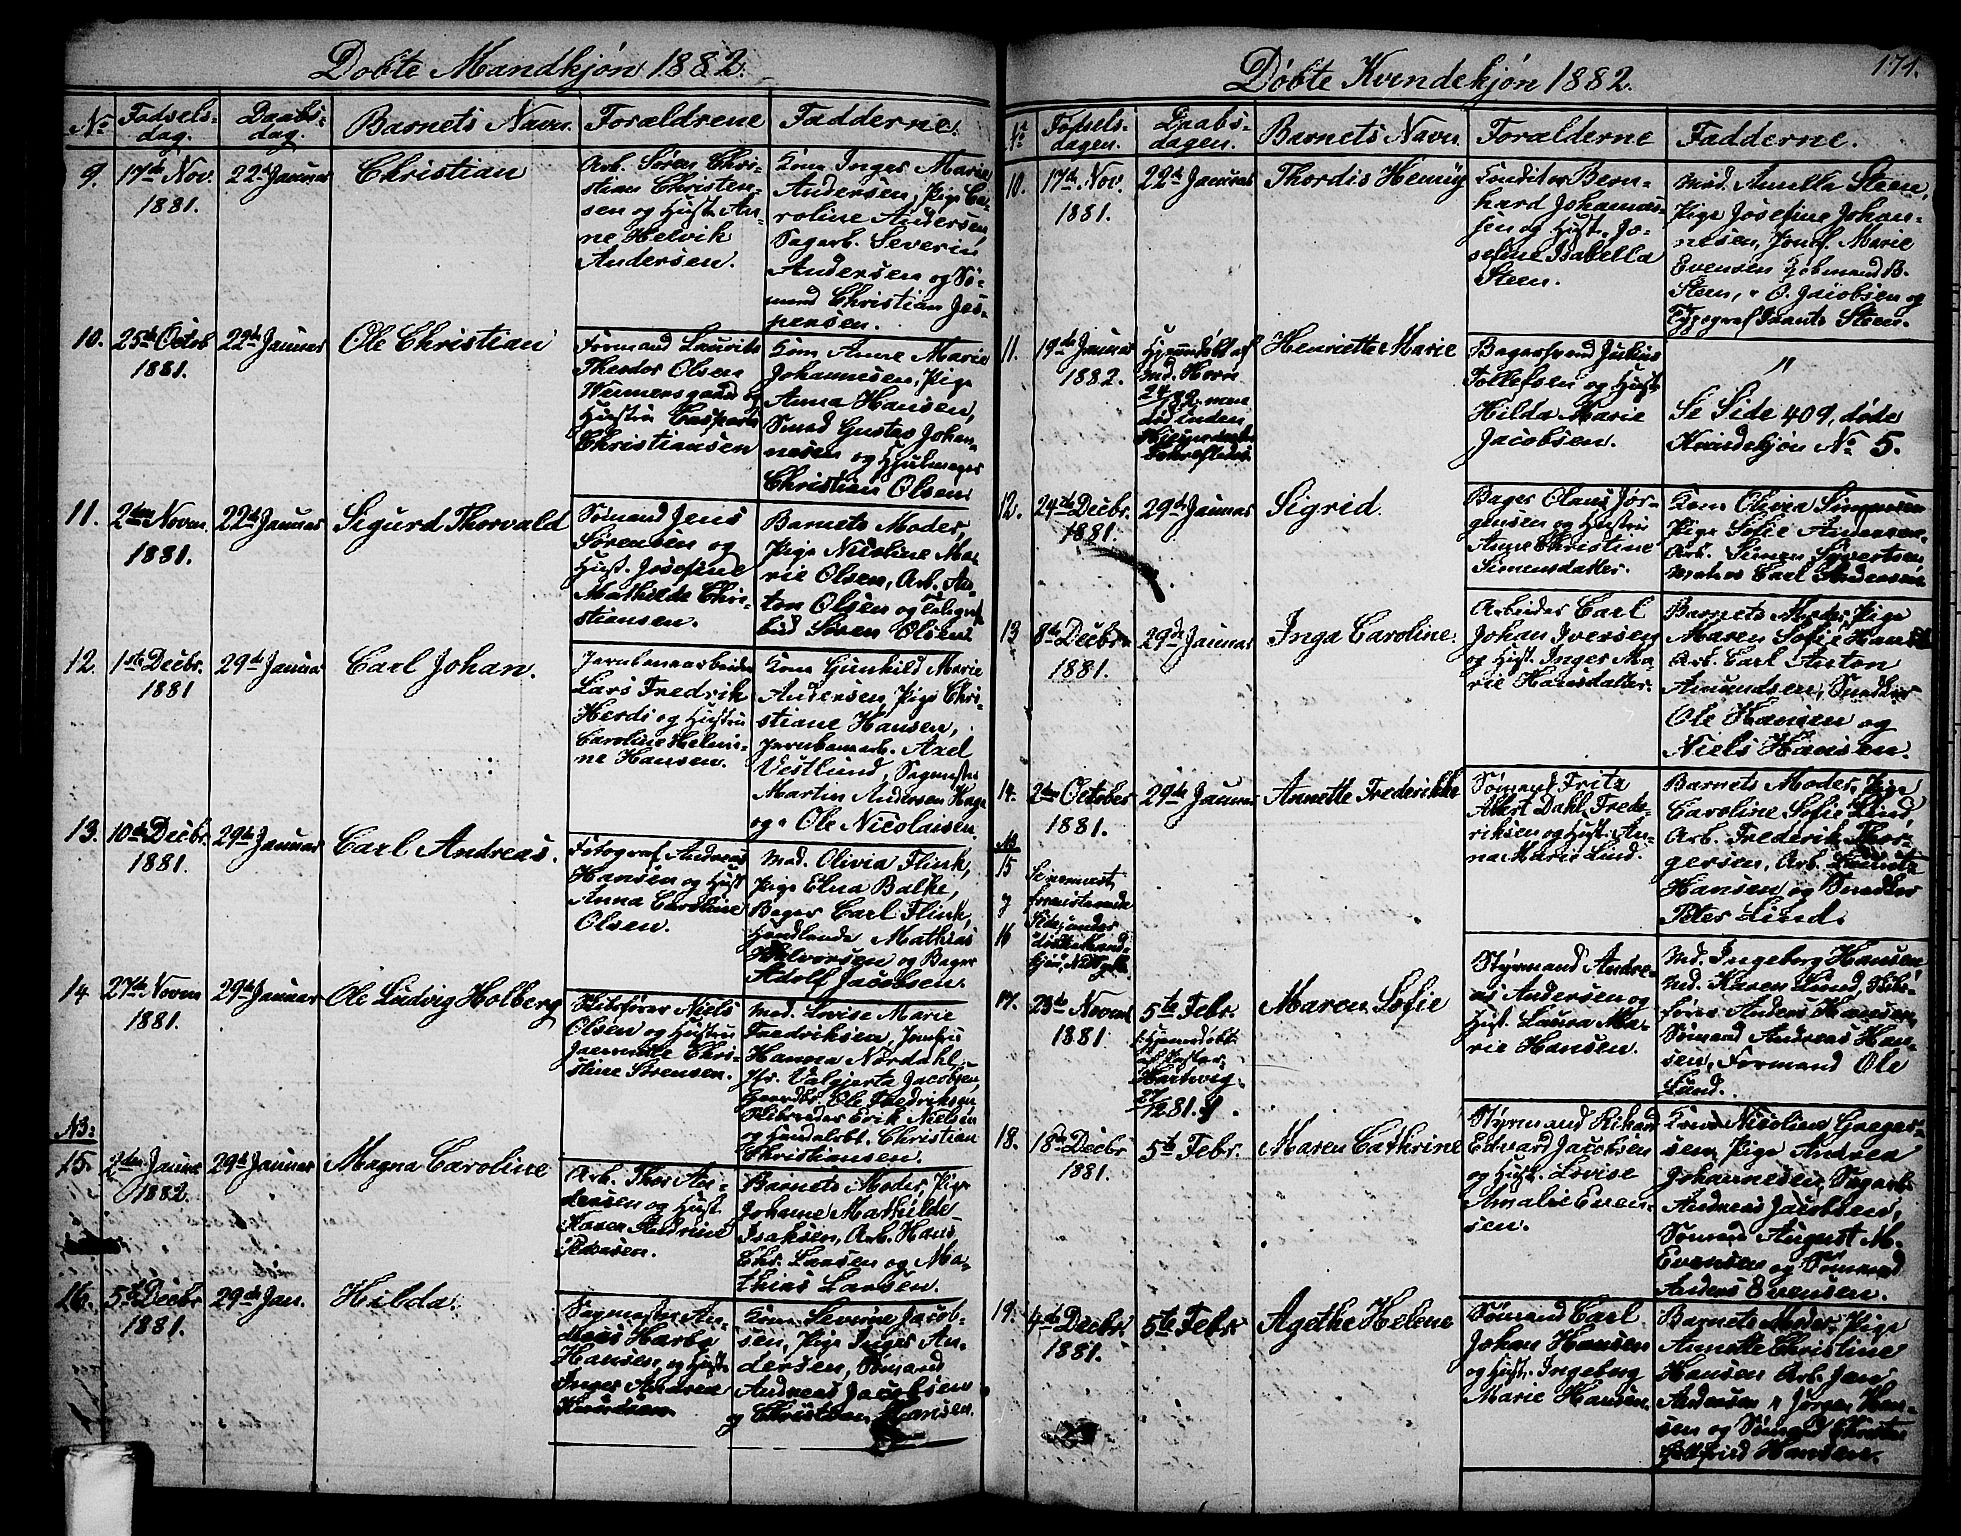 Døbte Mandkjøn 1882.
No
Fødsels-
dag.
Daabs-
dag.
Barnets Navn.
Forældrene
Fadderne.
9.
17de Nov.
1881.
22d Januar
Christian
Arb. Søren Chri-
stian Christen-
sen og Hust. An-
ne Helvik
Andersen.
Kone Inger Marie
Andersen, Pige Ca-
roline Andersen,
Sagarb. Severin
Andersen og Sø-
mand Christian Jes-
persen.
10.
25de Octob
1881.
22de Januar
Ole Christian
Formand Laurits
Theodor Olsen
Wennersgaard og
Hustru Caspara
Christiansen
Kone Anne Marie
Johannesen, Pige
Anna Hansen,
Smed Gustav Johan-
nesen og Hjulmager
Christian Olsen.
11.
2den Novm.
1881.
22de Januar
Sigurd Thorvald
Sømand Jens
Sørensen og
Hust. Josefine
Mathilde Chri-
stiansen.
Barnets Moder,
Pige Nicoline Ma-
rie Olsen, Arb. An-
ton Olsen og Telegraf
bud Søren Olsen.
12.
1ste Decbr.
1881
29de Januar
Carl Johan.
Jernbanearbeider
Lars Fredrik
Herdi og Hustru
Caroline Helmi-
ne Hansen.
Kone Gunhild Marie
Andersen, Pige Chri-
stiane Hansen,
Jernbanearb. Axel
Vestlund, Sagmester
Martin Andersen Hage
og " Ole Nicolaisen.
13.
10de Decbr.
1881.
29de Januar
Carl Andreas.
Fotograf Andreas
Hansen og Hust
Anna Caroline
Olsen.
Mad. Olivia Flink,
Pige Elna Balke,
Bager Carl Flink,
Handlende Mathias
Halvorsen og Bager
Adolf Jacobsen.
14
27de Novm
1881.
29de Januar
Ole Ludvig Holberg
Skibsfører Niels
Olsen og Hustru
Jaennette Chri-
stine Sørensen.
Mad. Lovise Marie
Fredriksen, Jomfru
Hanna Nordahl,
Jfr. Valgjerta Jacobsen,
Handlbr. Ole Fredriksen
Skibsreder Erik Nielsen
og Handelsbt. Christian
Christiansen.
NB:
15.
2den Januar
1882.
29de Januar
Magna Caroline
Arb. Thor An-
dersen og Hust
Karen Andrine
Pedersen.
Barnets Moder, Pige
Johanne Mathilde
Isaksen, Arb. Hans
Chr. Larsen og Ma-
thias Larsen.
16.
5te Decbr
1881.
29de Jan.
Hilda.
Sagmester An-
dreas Harby
Hansen, og Hust.
Inger Andrea
Knudsen
Kone Severine Jacob-
sen, Pige Inger An-
dersen, Sømand
Andreas Jacobsen
og Christian Hansen.
Døbte Kvindekjøn 1882.
171.
No
Fødsels-
dagen.
Daabs-
dagen.
Barnets Navn.
Forælderne
Fadderne.
10.
17de Nov.
1881.
22de Januar
Thordis Henny
Conditor Bern-
hard Johannes-
sen og Hust. Jo-
sefine Isabella
Steen.
Mad. Anneta Steen,
Pige Josefine Johan-
nesen, Jomf. Marie
Evensen Kjøbmand B.
Steen, " O. Jacobsen og
Typograf Steen.
11.
19de Januar
1882.
Hjemmedøbt af
Md. Horn
24/1 82. men
død inden
Hjemmedaaben
bekræftedes.
Henriette Marie
Bagersvend Julius
Tollefsen og Hust.
Hilda Marie
Jacobsen.
"
Se Side 409, døde
Kvindekjøn No 5.
12.
24de Decbr.
1881.
29de Januar
Sigrid.
Bager Olaus Jør-
gensen og Hustru
Anne Christine
Simensdatter.
Kone Olivia Simensen
Pige Sofie Andersen,
Arb. Simen Sivertsen,
Carl Andersen
13
8de Decbr.
1881.
29de Januar
Inga Caroline.
Arbeider Carl
Johan Iversen
og Hust. Inger Ma-
rie Hansdatter.
Barnets Moder, Pige
Maren Sofie Hansen
Arb. Carl Anton
Amundsen, Snedker
Ole Hansen og
Niels Hansen.
14.
2den October
1881.
29de Januar
Annette Frederikke
Sømand Fritz
Albert Dahl Frede-
riksen og Hust. An-
na Marie Lind.
Barnets Moder, Pige
Caroline Sofie Lind,
Arb. Frederik Thor-
gersen, Arb. Laurits
Hansen og Snedker
Peter Lind.
NB
15
og
16
Se nærmest
foranstaaende
Side under
døbte Mand-
kjøn,
17.
23de Novmb
1881
5te Febr.
(: Hjemmedøbt
af Pastor
Hartvig
27/12 81. :)
Maren Sofie
Styrmand Andre-
as Andersen og
Hust. Laura Ma-
rie Hansen.
Md. Ingeborg Hansen
Md. Karen Lund, Skibs-
fører Anders Hansen,
Sømand Andreas Han-
sen, Formand Ole
Lund.
18.
18de Decbr
1881.
5te Febr.
Maren Cathrine
Styrmand Rikard
Edvard Jacobsen
og Hust. Lovise
Amalie Even-
sen.
Kone Nicoline Gregers-
sen, Pige Andrea
Johannesen, Sagarb.
Andreas Jacobsen,
Sømand August M.
Evensen og Sømand
Anders Evensen.
19.
4de Decbr.
1881.
5te Febr
Agethe Helene
Sømand Carl
Johan Hansen
og Hust. Ingeborg
Marie Hansen.
Barnets Moder, Pige
Annette Christine
Hansen Arb. Jens
Andersen " Jørgen Han-
sen og Sømand
Hansen.